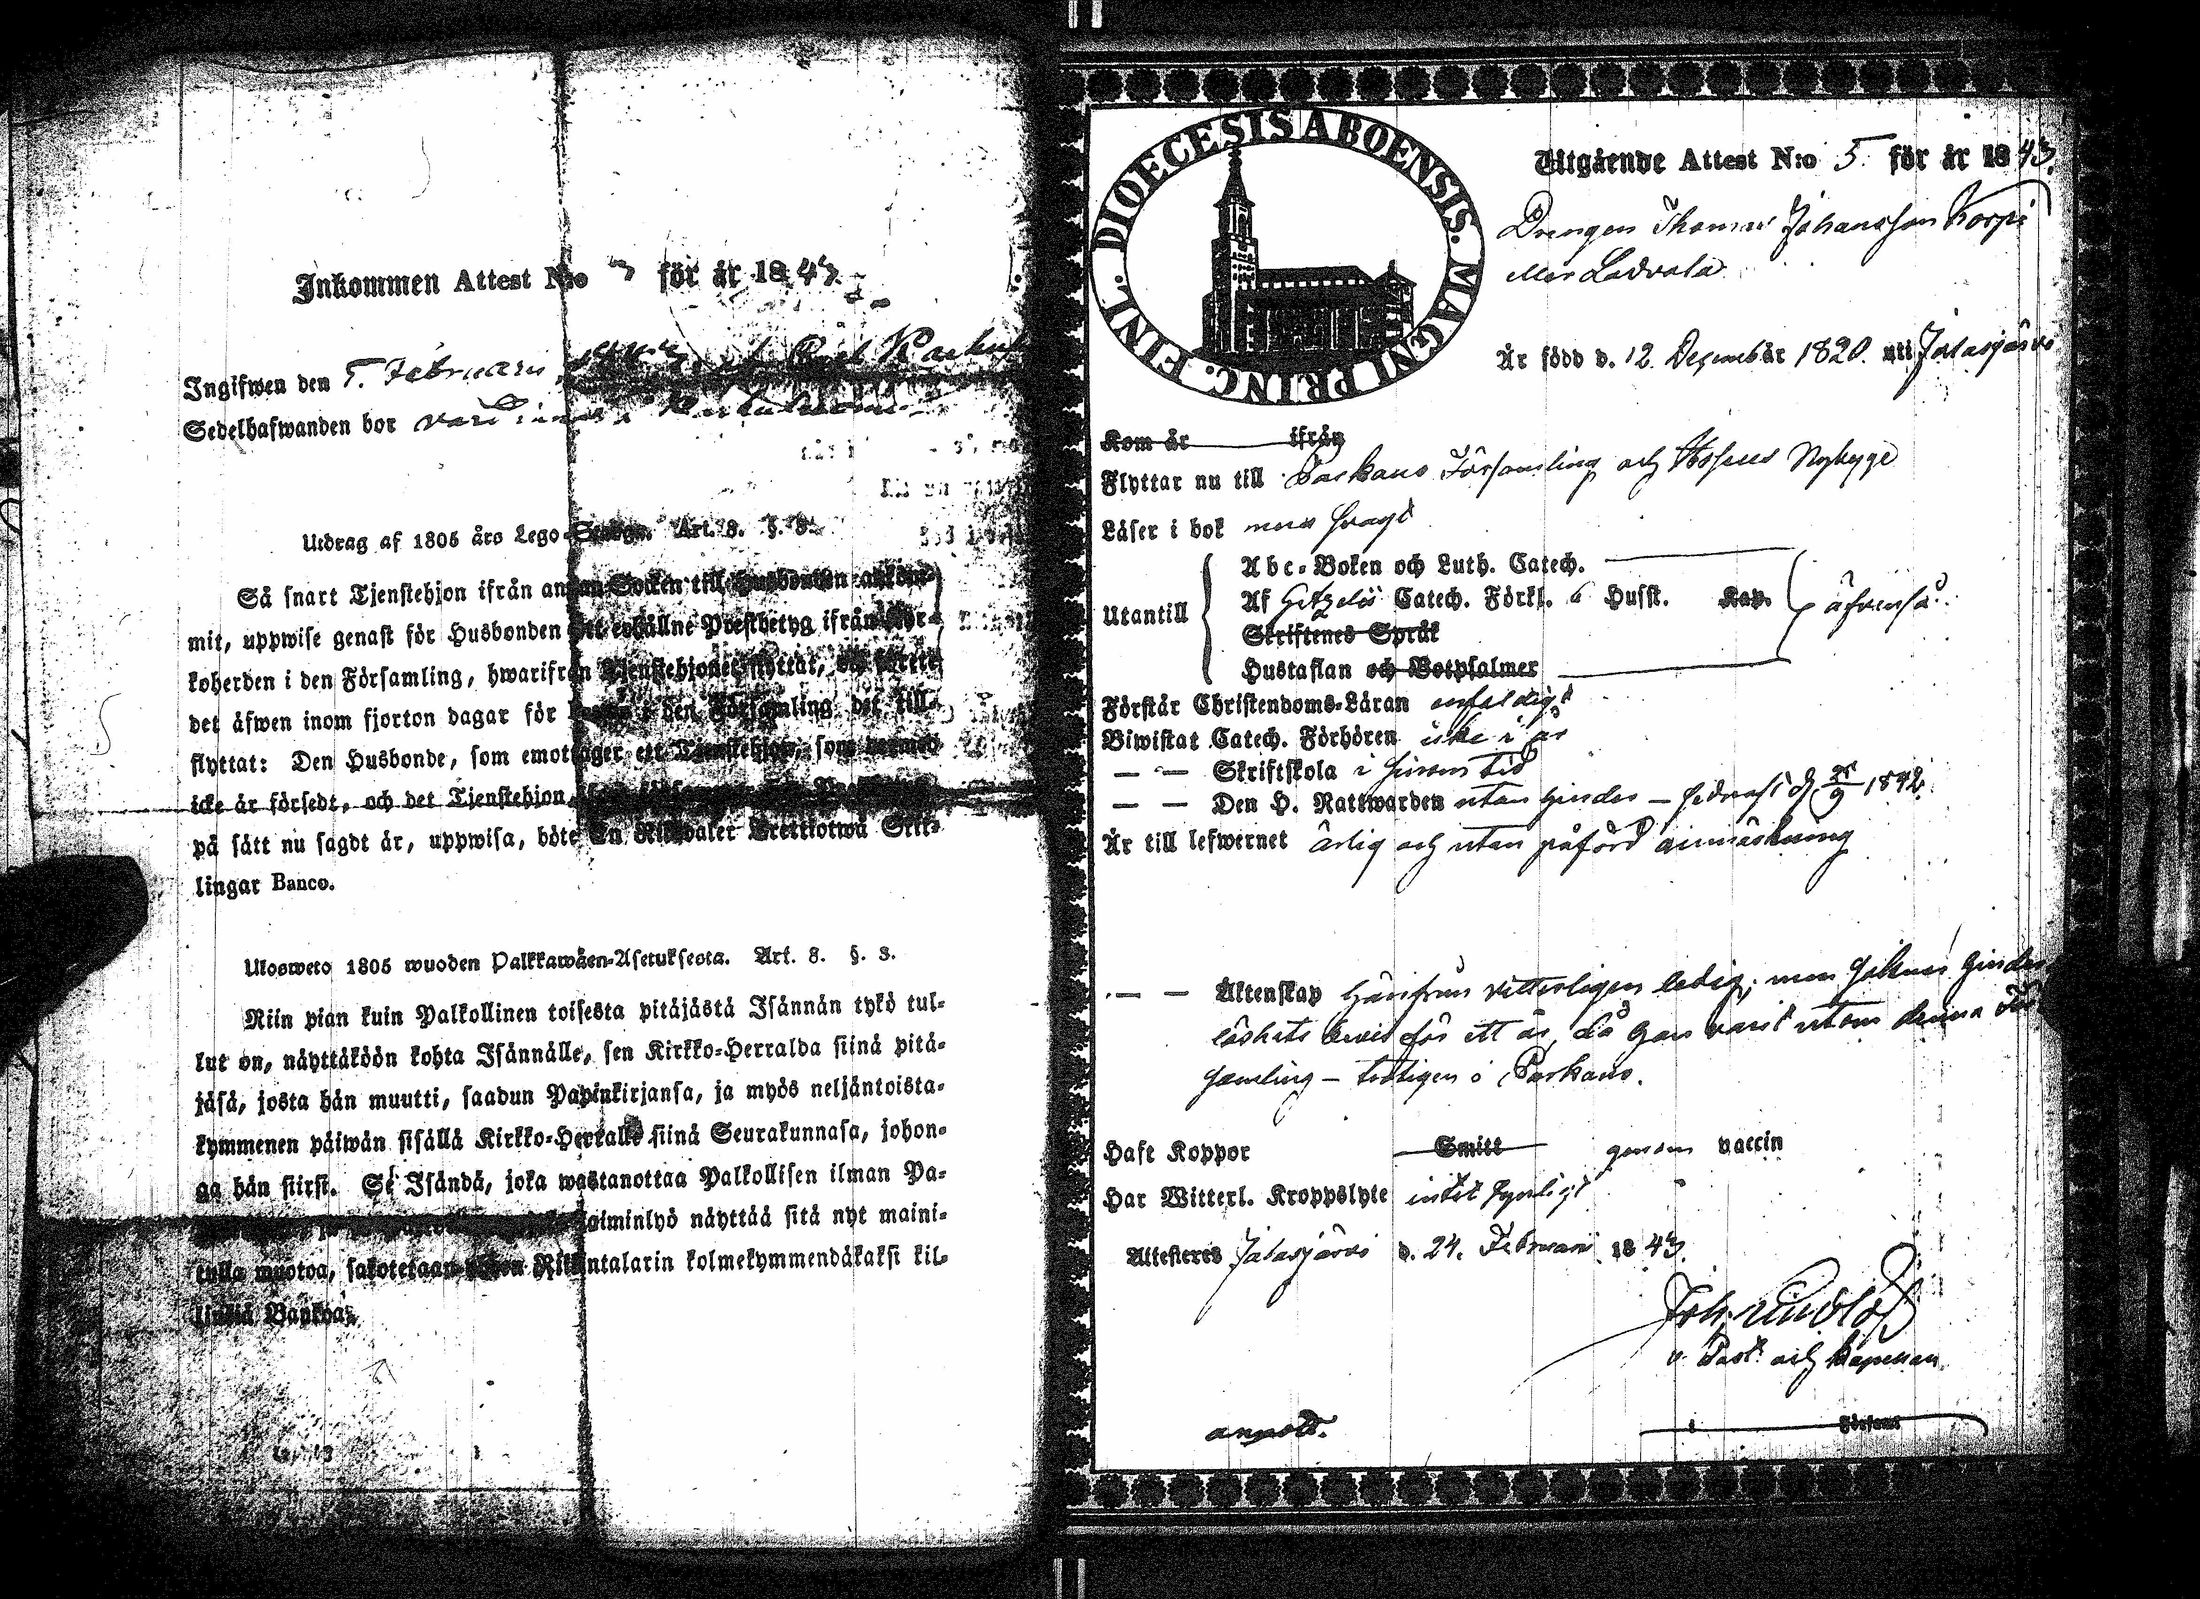 Inkommen Attest N:o för år 1843
Ingifwen den 5. Februari
Sedelhafwanden bor
Utdrag af 1805 års Lego-Stadga. Art. 8. §. 3.
Så snart Tjenstehjon ifrån annan Socken till Husbonden ankom-
mit, uppwise genast för Husbonden ett erhållne Prestbetyg ifrån Kyr-
koherden i den Församling, hwarifrån Tjenstehjonet flyttat, och förete
det äfwen inom fjorton dagar för i den Församling det till-
flyttat: Den Husbonde, som emottager ett Tjenstehjon, som dermed
icke är försedt, och det Tjenstehjon,
på sätt nu sagdt är, uppwisa, böte En Riksdaler Trettiotwå Skil-
lingar Banco.
Ulosweto 1805 wuoden Palkkawäen-Asetuksesta. Art. 8. §. 3.
Niin pian kuin Palkollinen toisesta pitäjästä Isännän tykö tul-
lut on, näyttäköön kohta Isännälle, sen Kirkko-Herralda siinä pitä-
jäsä, josta hän muutti, saadun Papinkirjansa, ja myös neljäntoista-
kymmenen päiwän sisällä Kirkko-Herralle siinä Seurakunnasa, johon-
ga hän siirst. Se Isändä, joka wastanottaa Palkollisen ilman Pa-
laiminlyö näyttää sitä nyt maini-
tulla muotoa, sakotetaan Rikintalarin kolmekymmendäkaksi kil-
linkiä Bankoa.
DIOECESIS ABOENSIS. MAGNI PRINC. FINL.
Utgående Attest N:o 5. för år 1843.
Drengen Thomas Johansson Korpi
eller Ladvala
Är född d. 12. December 1820. uti Jalasjärvi
Kom år ifrån
Flyttar nu till Parkano Församling och Nybygge
Läser i bok svagt
Abc-Boken och Luth. Catech.
Utantill
Af Getzelii Catech. Förkl. 6 Husst. Kap.
Skriftenes Språk
Hustaflan och Botpsalmer
Förstår Christendoms-Läran enfaldigt
Biwistat Catech. Förhören icke i år
— — Skriftskola i sinom tid
— — Den H. Nattwarden utan hinder — sednast d. 25/9 1842.
Är till lefwernet ärlig och utan påförd anmärkning
— — Äktenskap härifrån vitterligen ledig; men saknar hinder
löshets bevis för ett år, då han varit utom denna För
samling — troligen i Parkano.
Haft Koppor Smitt genom vaccin
Har Witterl. Kroppslyte intet synligt
Attesteras Jalasjärvi d. 24. Februari 1843.
v. Past. och Kapellan.
i Förs:ml